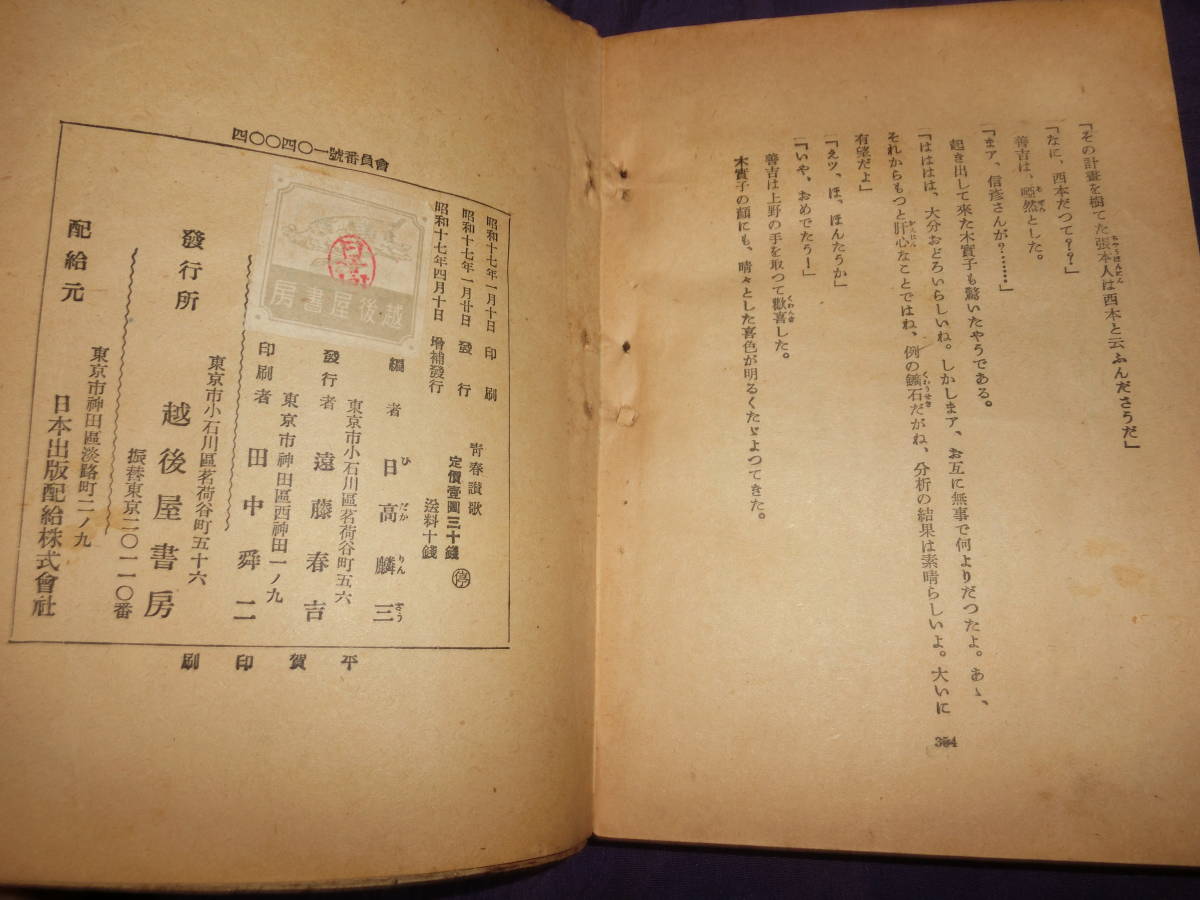 「その計畫を樹てた張本人は西本と云ふんださうだ」
「なに、西本だつて？？」
善吉は、啞然とした。
「まア、信彦さんが？………」
起き出して來た木實子も驚いたやうである。
「ははは、大分おどろいらしいね。しかしまア、お互に無事で何よりだつたよ。あゝ、
それからもつと肝心なことではね、例の鑛石だがね、分析の結果は素晴らしいよ。大いに
有望だよ」
「えツ、ほ、ほんたうか」
「いや、おめでたう！」
善吉は上野の手を取つて歡喜した。
木實子の顏にも、晴々とした喜色が明るくたゞよつてきた。
364
會員番號一〇四〇〇四
昭和十七年一月十日 印刷
昭和十七年一月廿日 發行
昭和十七年四月十日 增補發行
靑春讃歌
定價壹圓三十錢 停
送料十錢
編者 日高麟三
東京市小石川區茗荷谷町五六
發行者 遠藤春吉
東京市神田區西神田一ノ九
印刷者 田中舜二
東京市小石川區茗荷谷町五十六
發行所 越後屋書房
振替東京二〇一一〇番
東京市神田區淡路町二ノ九
配給元 日本出版配給株式會社
平賀印刷
越後屋書房